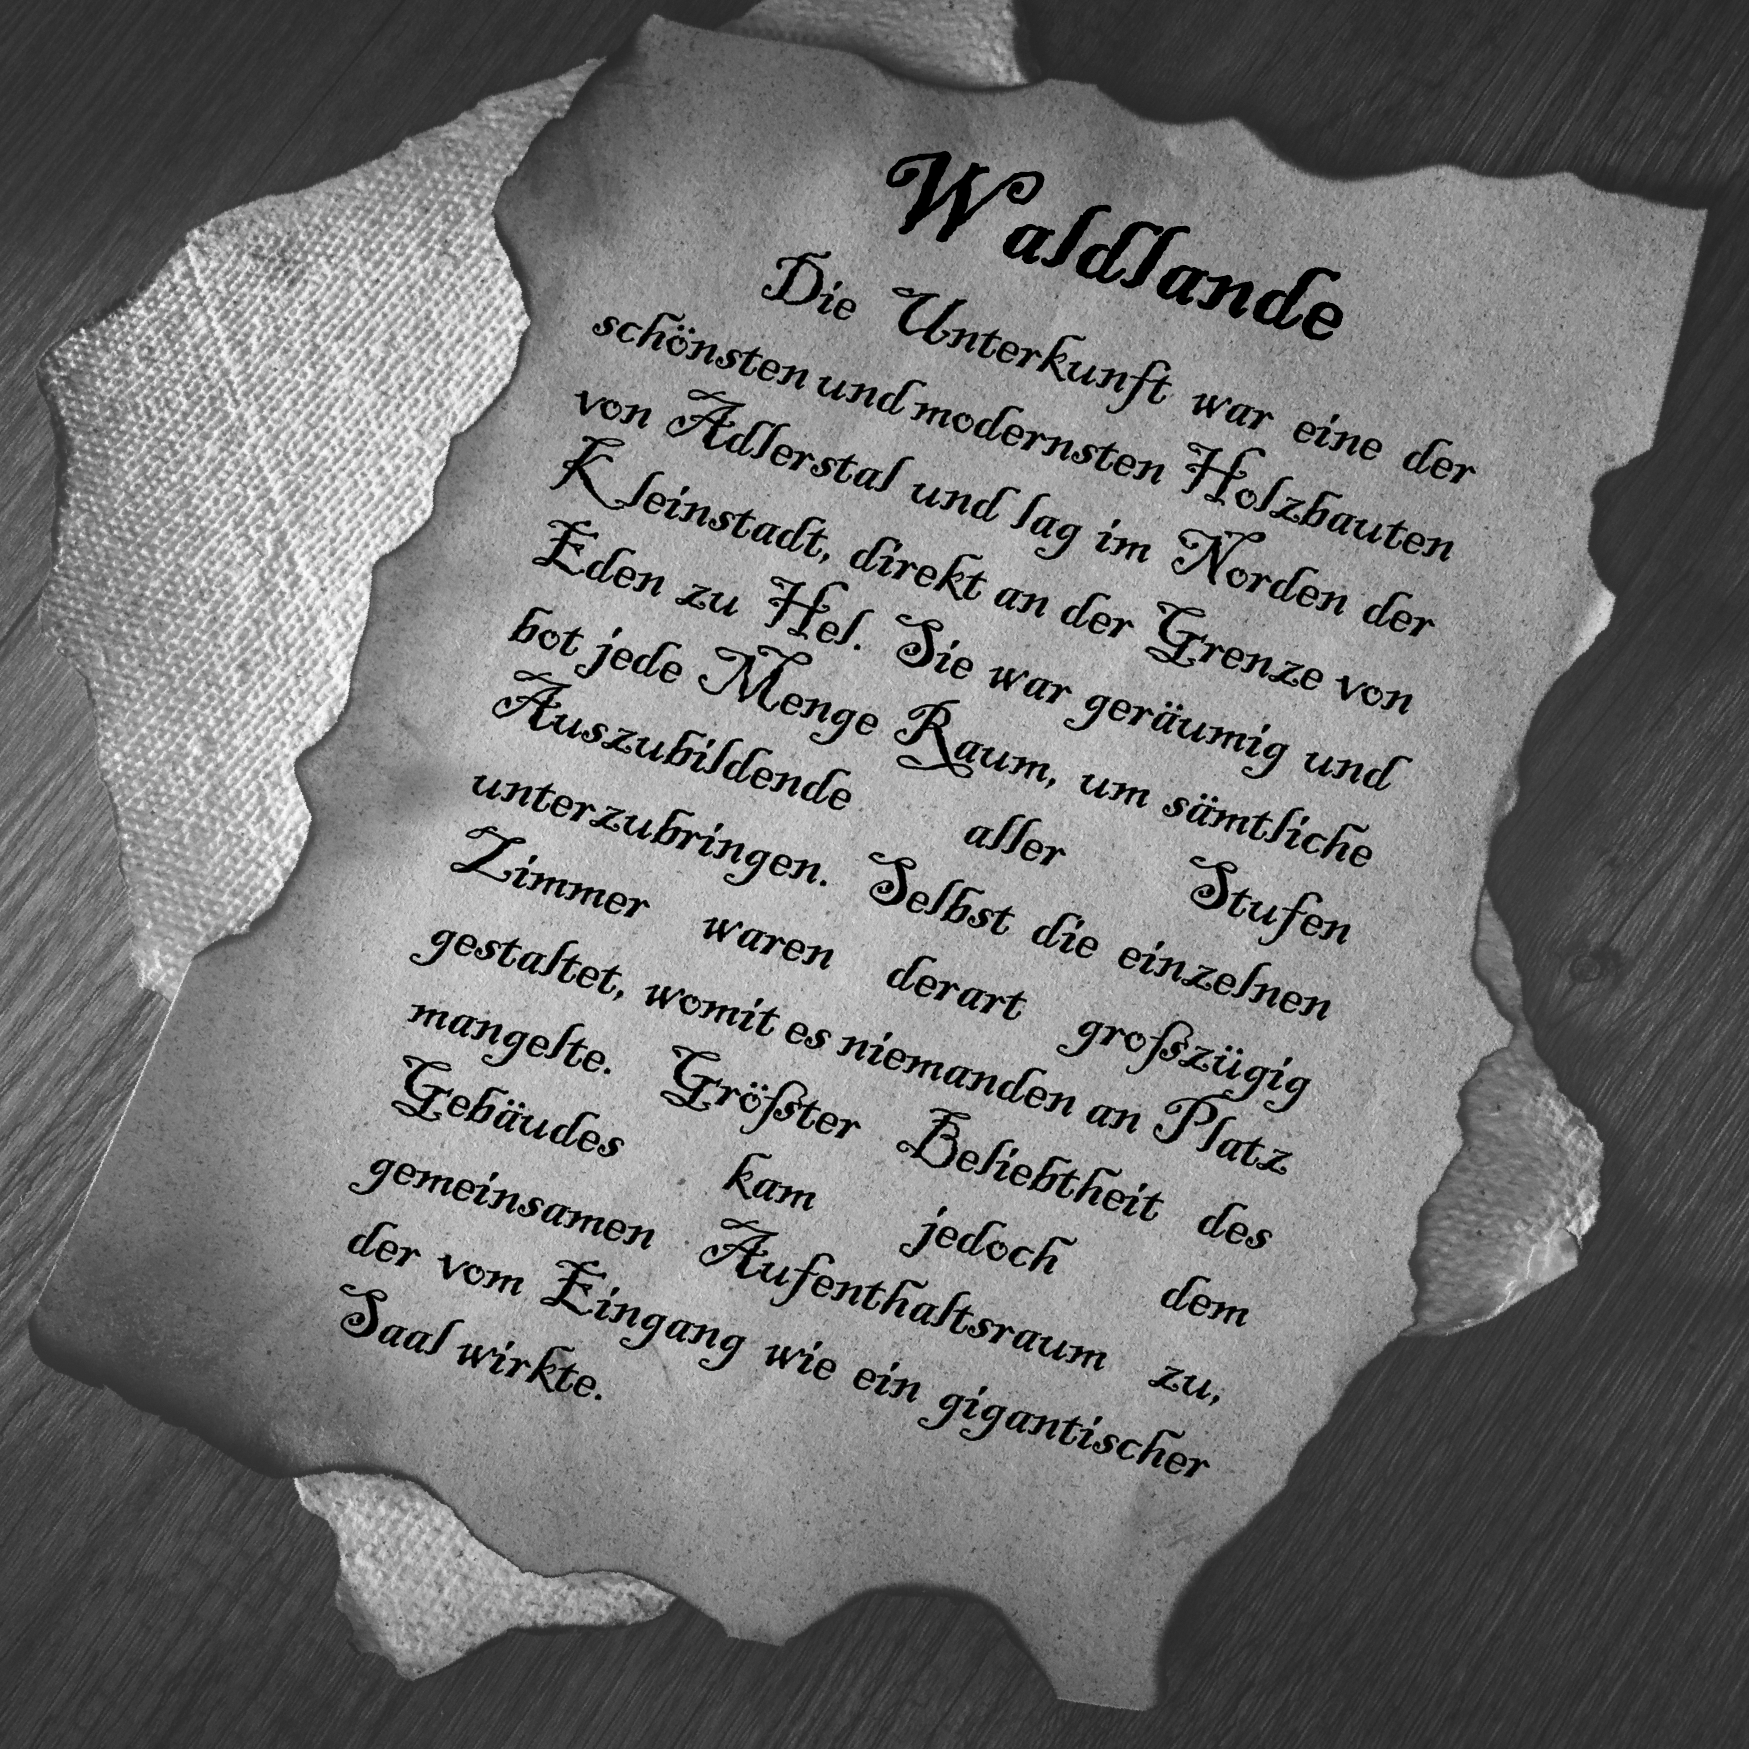 Waldlande
Die Unterkunft war eine der
schönsten und modernsten Holzbauten
von Adlerstal und lag im Norden der
Kleinstadt, direkt an der Grenze von
Eden zu Hel. Sie war geräumig und
bot jede Menge Raum, um sämtliche
Auszubildende aller Stufen
unterzubringen. Selbst die einzelnen
Zimmer waren derart großzügig
gestaltet, womit es niemanden an Platz
mangelte. Größter Beliebtheit des
Gebäudes kam jedoch dem
gemeinsamen Aufenthaltsraum zu,
der vom Eingang wie ein gigantischer
Saal wirkte.